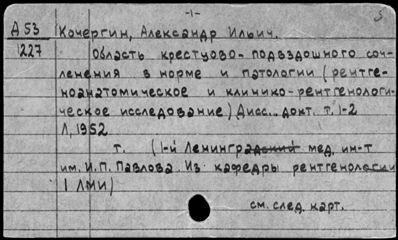 -1-
5
А 53 Кочергин, Александр Ильич.
1227 Область крестцово-подвздошного соч-
ленения в норме и патологии (рентге-
ноанатомическое и клинико-рентгенологи-
ческое исследование) Дисс... докт. т. 1-2
Л, 1952
т. (1-й Ленинградский мед. ин-т
им. И.П. Павлова. Из кафедры рентгенологии
1 ЛМИ)
см. след. карт.